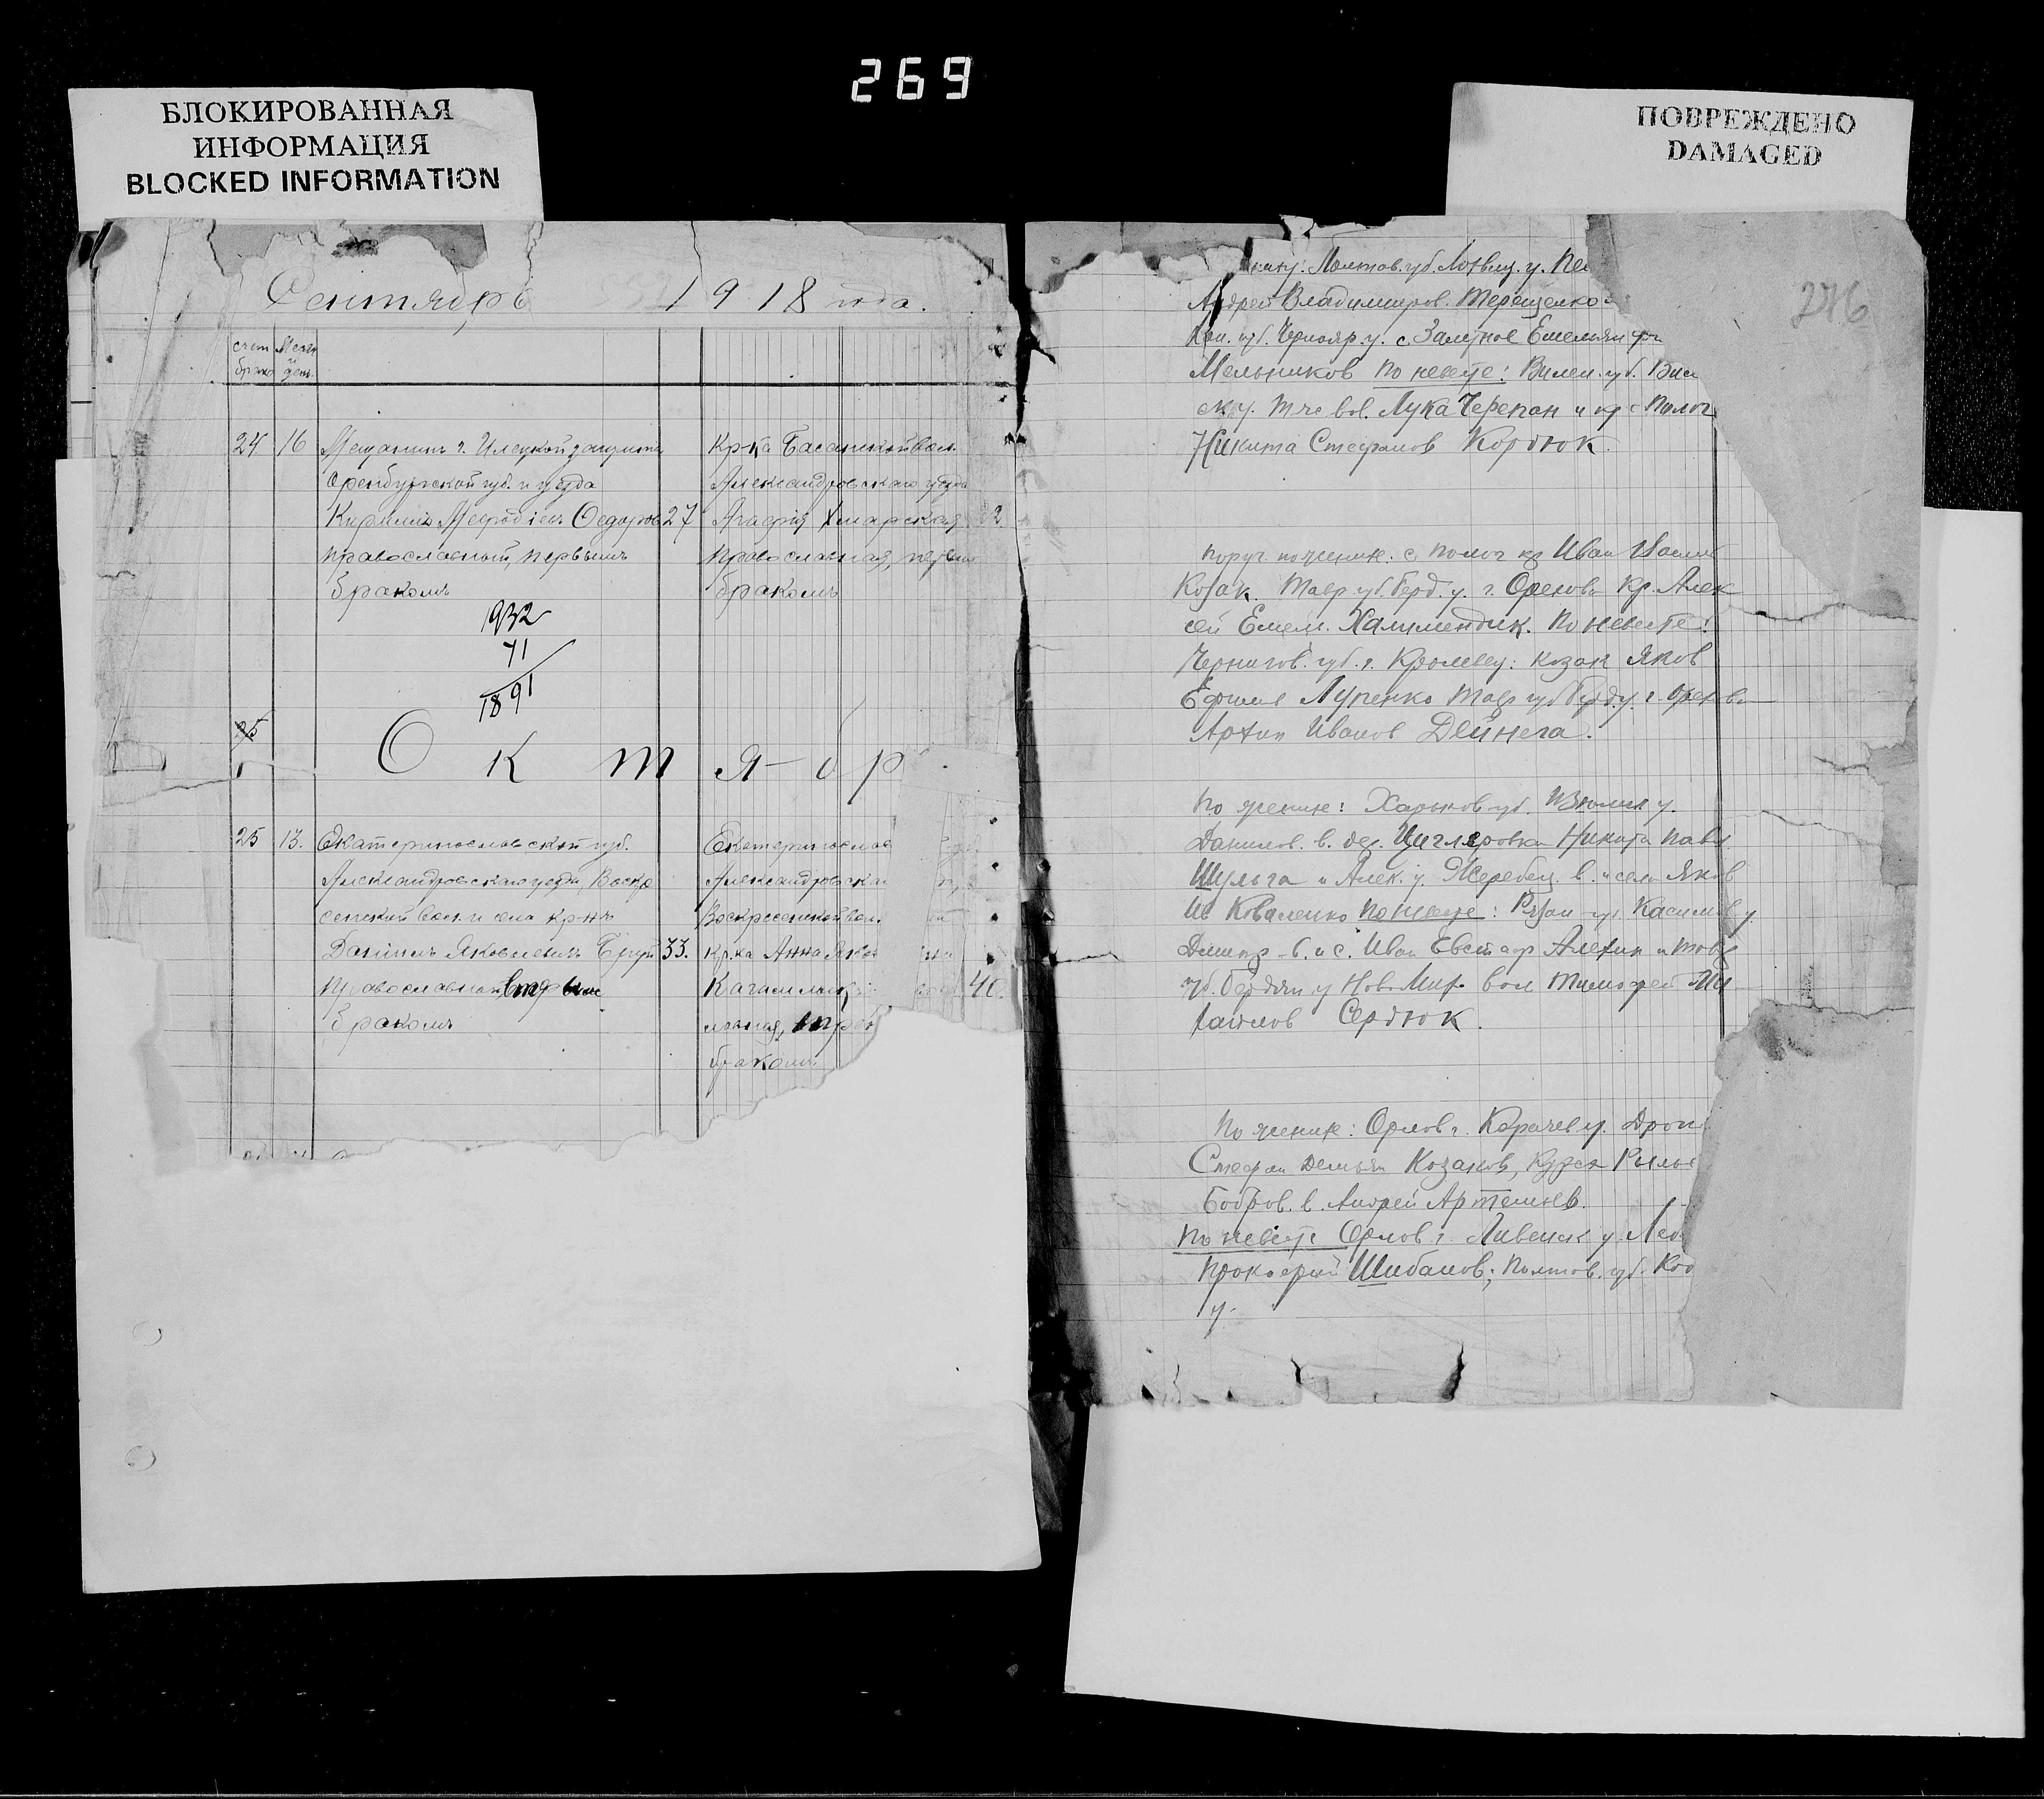 269
БЛОКИРОВАННАЯ
ИНФОРМАЦИЯ
BLOCKED INFORMATION
ПОВРЕЖДЕНО
DAMAGED
276
Сентябрь 1918 года.
счет
брако
день.
24 16 Мещанинъ г. Илецкой защиты
Оренбургской губ. и уезда
Кириллъ Мефодіевъ Федоров 27
православный, первымъ
бракомъ
Кр-ка Басанской вол.
Александровскаго уезда
Агафія Хмарская 22
православная, первым
бракомъ
1932
71
1891
25
О к т я б р
25 13. Екатеринославской губ.
Александровскаго уезда, Воскре
сенской вол. и села кр-нъ
Даніилъ Яковлевичъ 33.
Православный, вторым
бракомъ
Екатеринослав
Александровска
Воскресенской вол.
кр.ка Анна Яков
40
бракомъ
Полтов. губ. Лохвиц. у.
Андрей Владимиров. Терещенко
губ. Чернояр. у. с. Заметное Емельян
Мельников По невесте: Вилен. губ. Вил
ск. у. вол. Лука Черепан и кр с Полог
Никита Стефанов Кордюк.
поруч. по жениже: с. Полог кр Иван
Козак. Тавр. губ. Берд. у. г. Орехова Кр. Алек
сей Емел. Халимендик. По невесте:
Чернигов. губ. г. Кролевец: козак Яков
Ефимов Лупенко Тавр губ Берд у. г. Орехова
Архип Иванов Дейнега.
По жениже: Харьков. губ. Изюмск у.
Данилов. в. дер. Циглеровка Никита Павл
Шульга и Алек. у. Жеребец. в. и села Яков
Ив Коваленко по невесте: Рязан губ. Касимов у.
Дмитр. в. и с. Иван Евстаф Алехин и Тавр
губ. Бердян у Ново Мир. вол Тимофей Ми
хайлов Сердюк.
По жениже: Орлов г. Карачев у. Дрон
Стефан Демьян Козаков, Курск Рыльс
Бобров. в. Андрей Артемьев.
По невесте Орлов г. Ливенск у.
Прокофий Шибанов; Полтов. губ.
у.